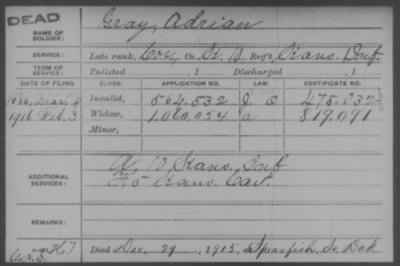 DEAD
Gray, Adrian
NAME OF SOLDIER:
SERVICE:
Late rank, Co. Reg't Kans. Inf.
TERM OF SERVICE:
Enlisted , 1 Discharged , 1
DATE OF FILING. CLASS. APPLICATION NO. LAW. CERTIFICATE NO.
Invalid, 564.532 475.032
1916 Feb. 3 Widow, 1.060.024 819.091
Minor,
ADDITIONAL SERVICES:
Kans. Inf
5 Kans. Cav.
REMARKS:
Died Dec. 29, 1915, Spearfish, So Dak